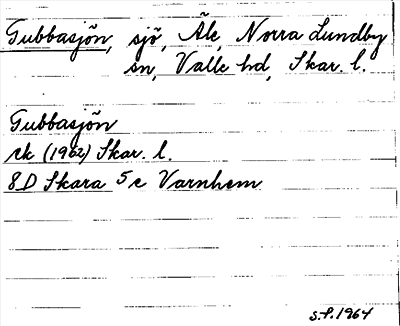 Gubbasjön, sjö, Äle, Norra Lundby
sn, Valle hd, Skar. l.
Gubbasjön
ek (1962) Skar. l.
8D Skara 5e Varnhem
S.P. 1964